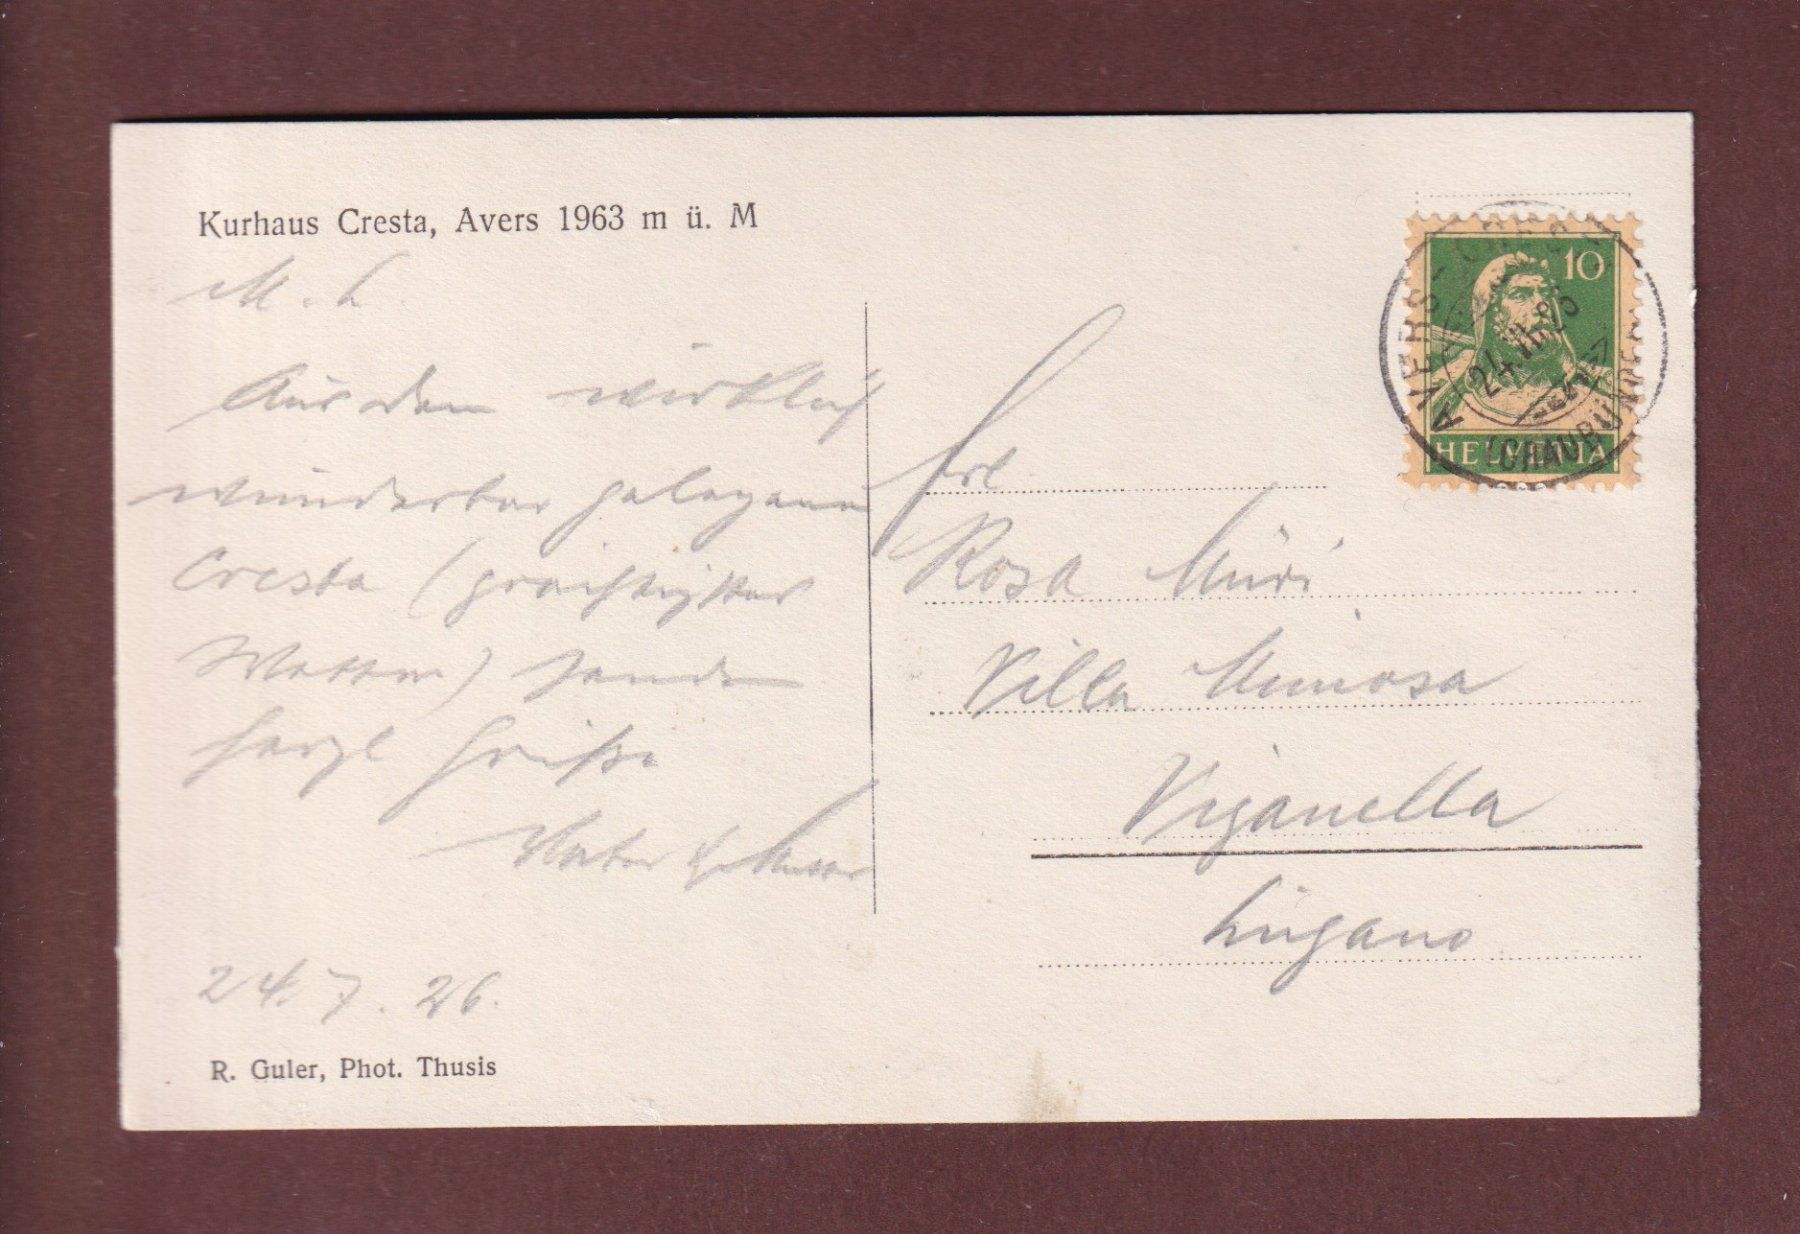 Kurhaus Cresta, Avers 1963 m ü. M
M. L.
Aus dem wirklich
wunderbar gelegenen
Cresta (prächtigstes
Wetter) senden
herzl Grüße
Vater &
24. 7. 26.
R. Guler, Phot. Thusis
10
HELVETIA
AVERS-CRESTA
24.VII.26
(GRAUBÜNDEN)
Frl
Rosa Müri
Villa Mimosa
Viganella
Lugano